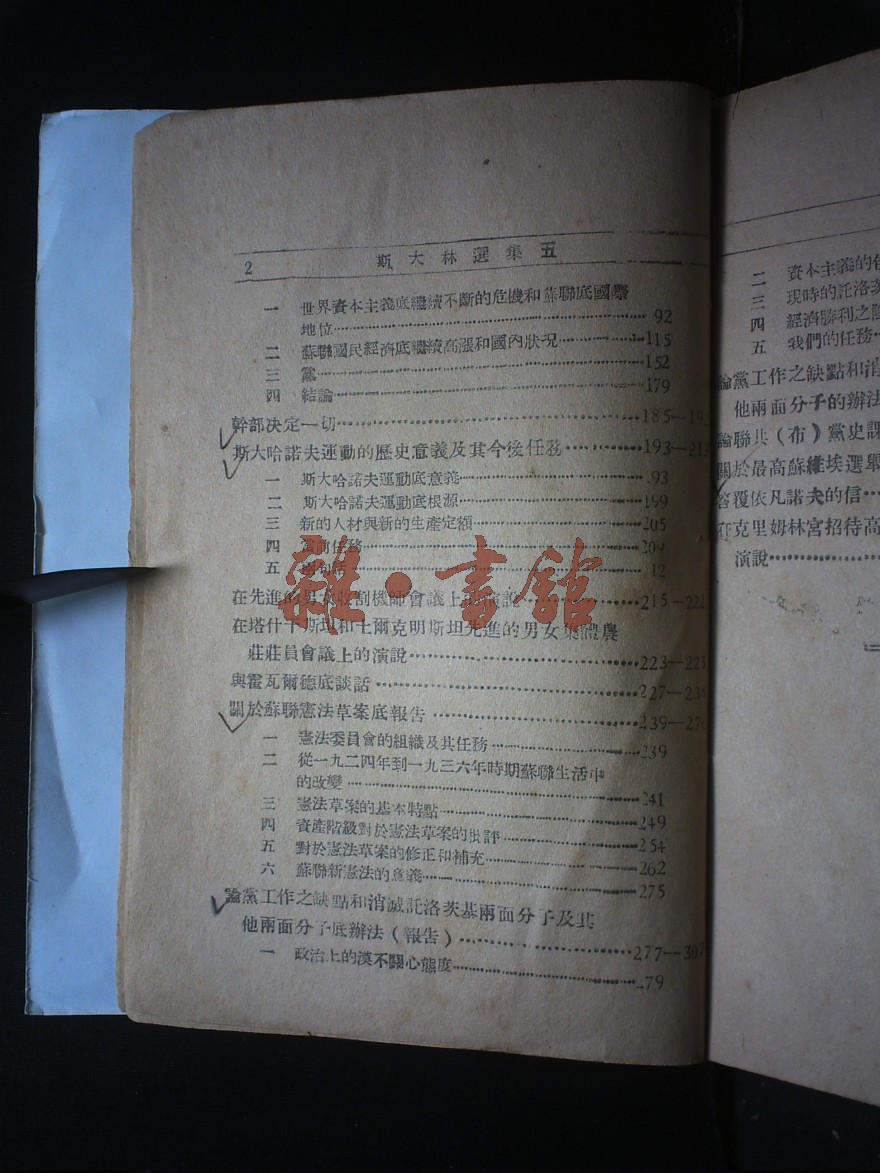 2 斯大林選集五
一 世界資本主義底繼續不斷的危機和蘇聯底國際
地位……92
二 蘇聯國民經濟底繼續高漲和國內狀况……115
三 黨……152
四 結論……179
幹部决定一切……185—19
斯大哈諾夫運動的歷史意義及其今後任務……193—213
一 斯大哈諾夫運動底意義……93
二 斯大哈諾夫運動底根源……199
三 新的人材與新的生產定額……205
四 當前任務……209
五 兩句話……12
在先進的男女收割機師會議上的演說……215—222
在塔什干斯坦和土爾克明斯坦先進的男女集體農
莊莊員會議上的演說……223—225
與霍瓦爾德底談話……227—238
關於蘇聯憲法草案底報告……239—276
一 憲法委員會的組織及其任務……239
二 從一九二四年到一九三六年時期蘇聯生活中
的改變……241
三 憲法草案的基本特點……249
四 資產階級對於憲法草案的批評……254
五 對於憲法草案的修正和補充……262
六 蘇聯新憲法的意義……275
論黨工作之缺點和消滅託洛茨基兩面分子及其
他兩面分子底辦法（報告）……277—307
一 政治上的漠不關心態度……79
二 資本主義的包
三 現時的託洛茨
四 經濟勝利之陰
五 我們的任務
論黨工作之缺點和消
他兩面分子的辦法
論聯共（布）黨史課
關於最高蘇維埃選舉
答覆依凡諾夫的信……
在克里姆林宮招待高
演說……
雜·書館